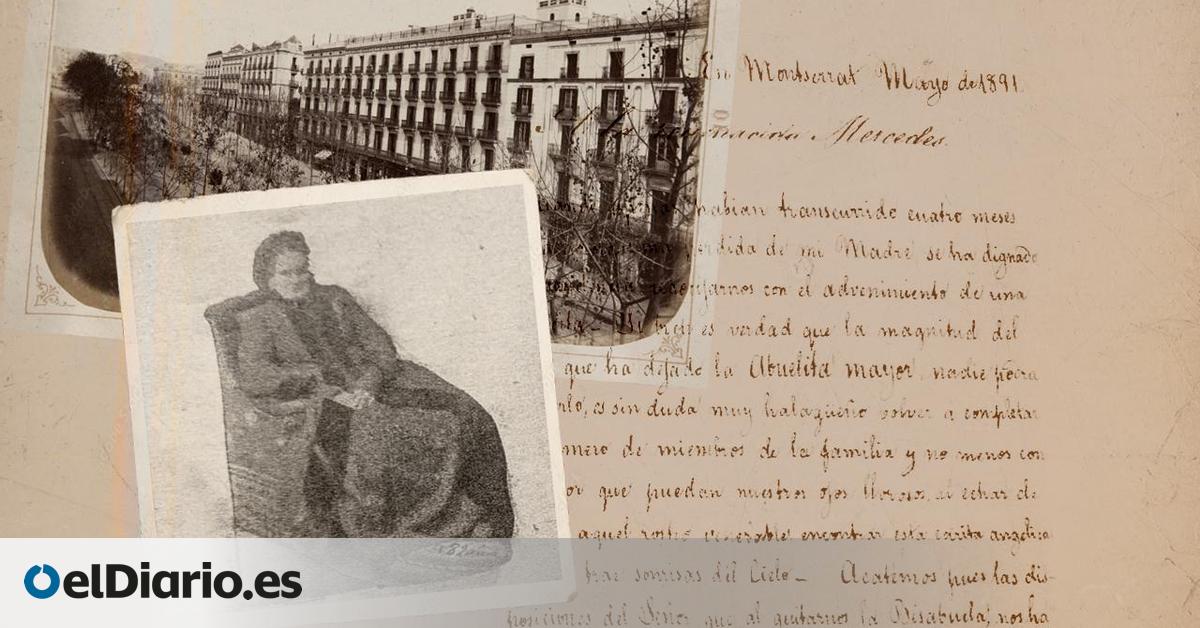 En Montserrat Mayo de 1891
Mercedes.
habian transcurrido cuatro meses
perdida de mi Madre se ha dignado
con el advenimiento de una
es verdad que la magnitud del
que ha dejado la Abuelita mayor, nadie podra
es sin duda muy halagüeño volver a completar
mero de miembros de la familia y no menos con
or que puedan nuestros ojos llorosos, al echar de
aquel rostro venerable encontrar esta carita angelica
sonrisas del Cielo_ Acatemos pues las dis-
posiciones del Señor que al quitarnos la Bisabuela, nos ha
elDiario.es